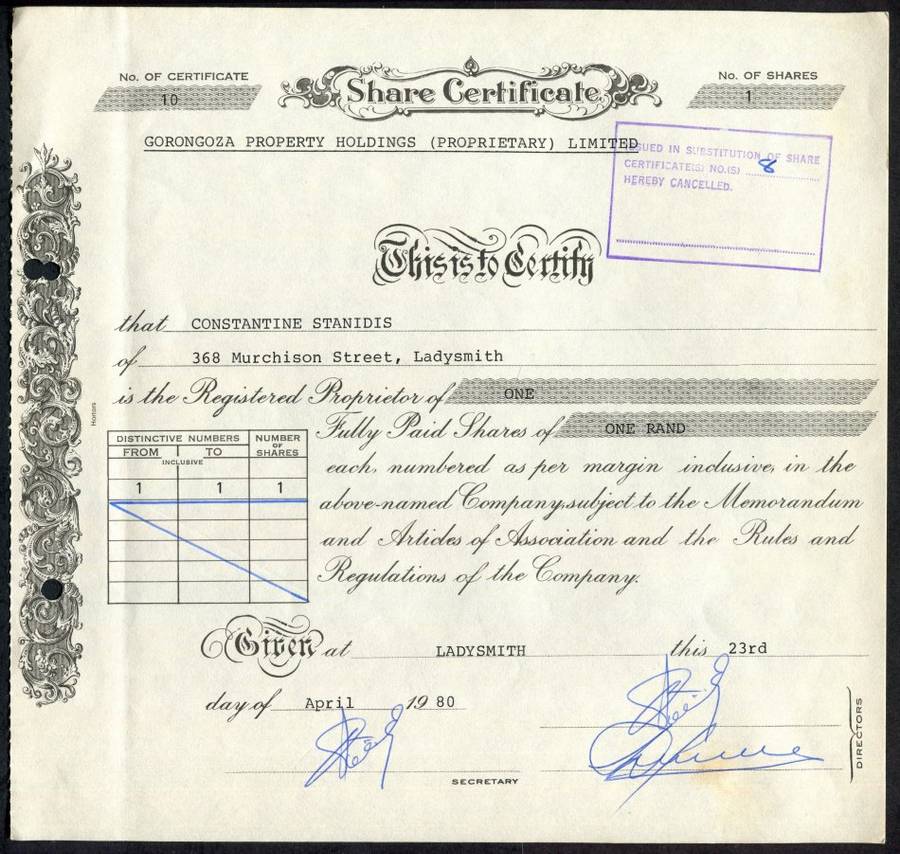 No. OF CERTIFICATE
10
Share Certificate
No. OF SHARES
1
GORONGOZA PROPERTY HOLDINGS (PROPRIETARY) LIMITED
ISSUED IN SUBSTITUTION OF SHARE
CERTIFICATE(S) NO.(S) 8
HEREBY CANCELLED.
This is to Certify
that CONSTANTINE STANIDIS
of 368 Murchison Street, Ladysmith
is the Registered Proprietor of ONE
Fully Paid Shares of ONE RAND
each, numbered as per margin inclusive, in the
above-named Company, subject to the Memorandum
and Articles of Association and the Rules and
Regulations of the Company.
Hortors
DISTINCTIVE NUMBERS NUMBER OF SHARES
FROM TO
INCLUSIVE
1 1 1
Given at LADYSMITH this 23rd
day of April 1980
DIRECTORS
SECRETARY